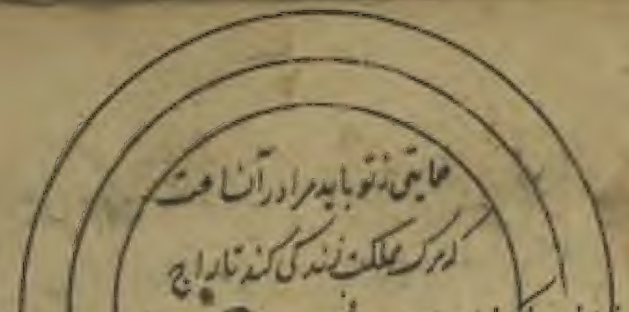 حمایتی ز تو باید مرا در آنساعت
که مرگ مملکت زندگی کند تاراج